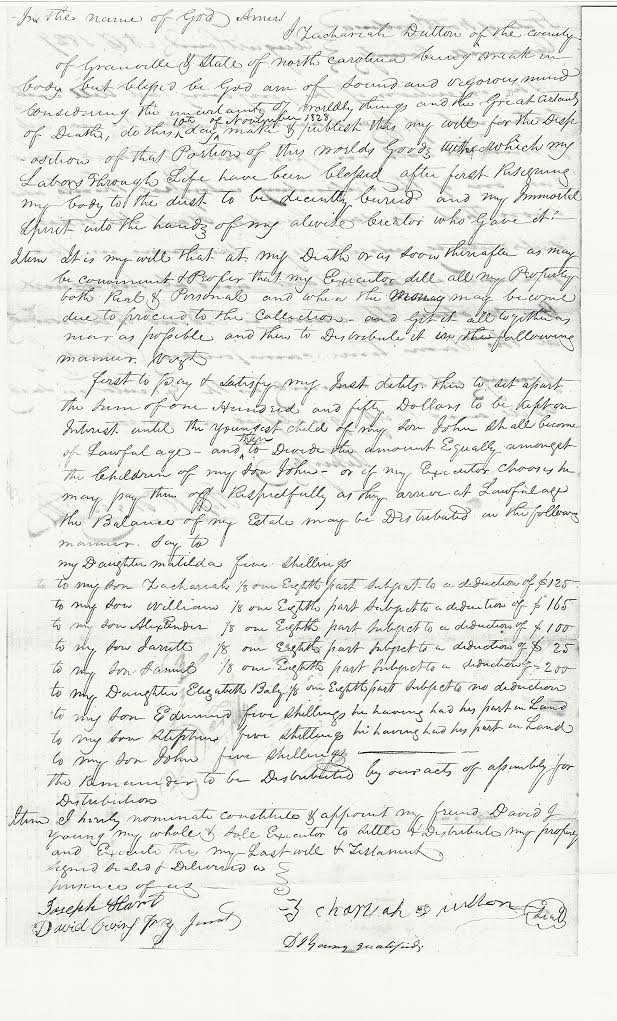 In the name of God Amen
I Zachariah Dutton of the county
of Granville & State of north carolina being weak in
body but blessed be God am of sound and vigorous mind
Considering the uncertainty of worldly things and the Great certainty
of Death, do this 10th day of November 1828 make & publish this my will for the Disp
-osition of that Portion of this worlds Goods with which my
Labors through Life have been blessed after first Resigning
my body to the dust to be decently buried and my Immortal
Spirit into the hands of my alwise Creator who Gave it:
Item It is my will that at my Death or as soon thereafter as may
be convenient & Proper that my Executor sell all my Property
both Real & Personal and when the money may become
due to proceed to the Collection - and Get it all together as
near as possible and then to Distribute it in the following
manner
first to pay & satisfy my Just debts then to set apart
the sum of one Hundred and fifty Dollars to be kept on
Interest until the youngest child of my Son John shall become
of Lawful age - and then to Divide the amount Equally amongst
the Children of my Son John - or if my Executor chooses he
may pay them off Respectfully as they arrive at Lawful age
the Balance of my Estate may be Distributed in the following
manner. Say to
my Daughter matilda five shillings
to my son Zachariah 1/8 one Eighth part Subject to a deduction of $125
to my son William 1/8 one Eighth part Subject to a deduction of $165
to my son Alexander 1/8 one Eighth part Subject to a deduction of $100
to my son Jarrott 1/8 one Eighth part Subject to a deduction of $25
to my son Samuel 1/8 one Eighth part Subject to a deduction of - 200
to my Daughter Elizabeth 1/8 one Eighth part Subject to no deduction
to my son Edmund five shillings he having had his part in Land
to my son Stephen five shillings he having had his part in Land
to my son John five shillings
the Remainder to be Distributed by our acts of assembly for
Distribution
Item I hereby nominate constitute & appoint my friend David J
Young my whole & sole Executor to settle & Distribute my property
and Execute this my Last will & Testament
Signed Sealed & Delivered in
presence of us
Joseph Hart
David Jurat
Zachariah Dutton Seal
D J Young qualified.